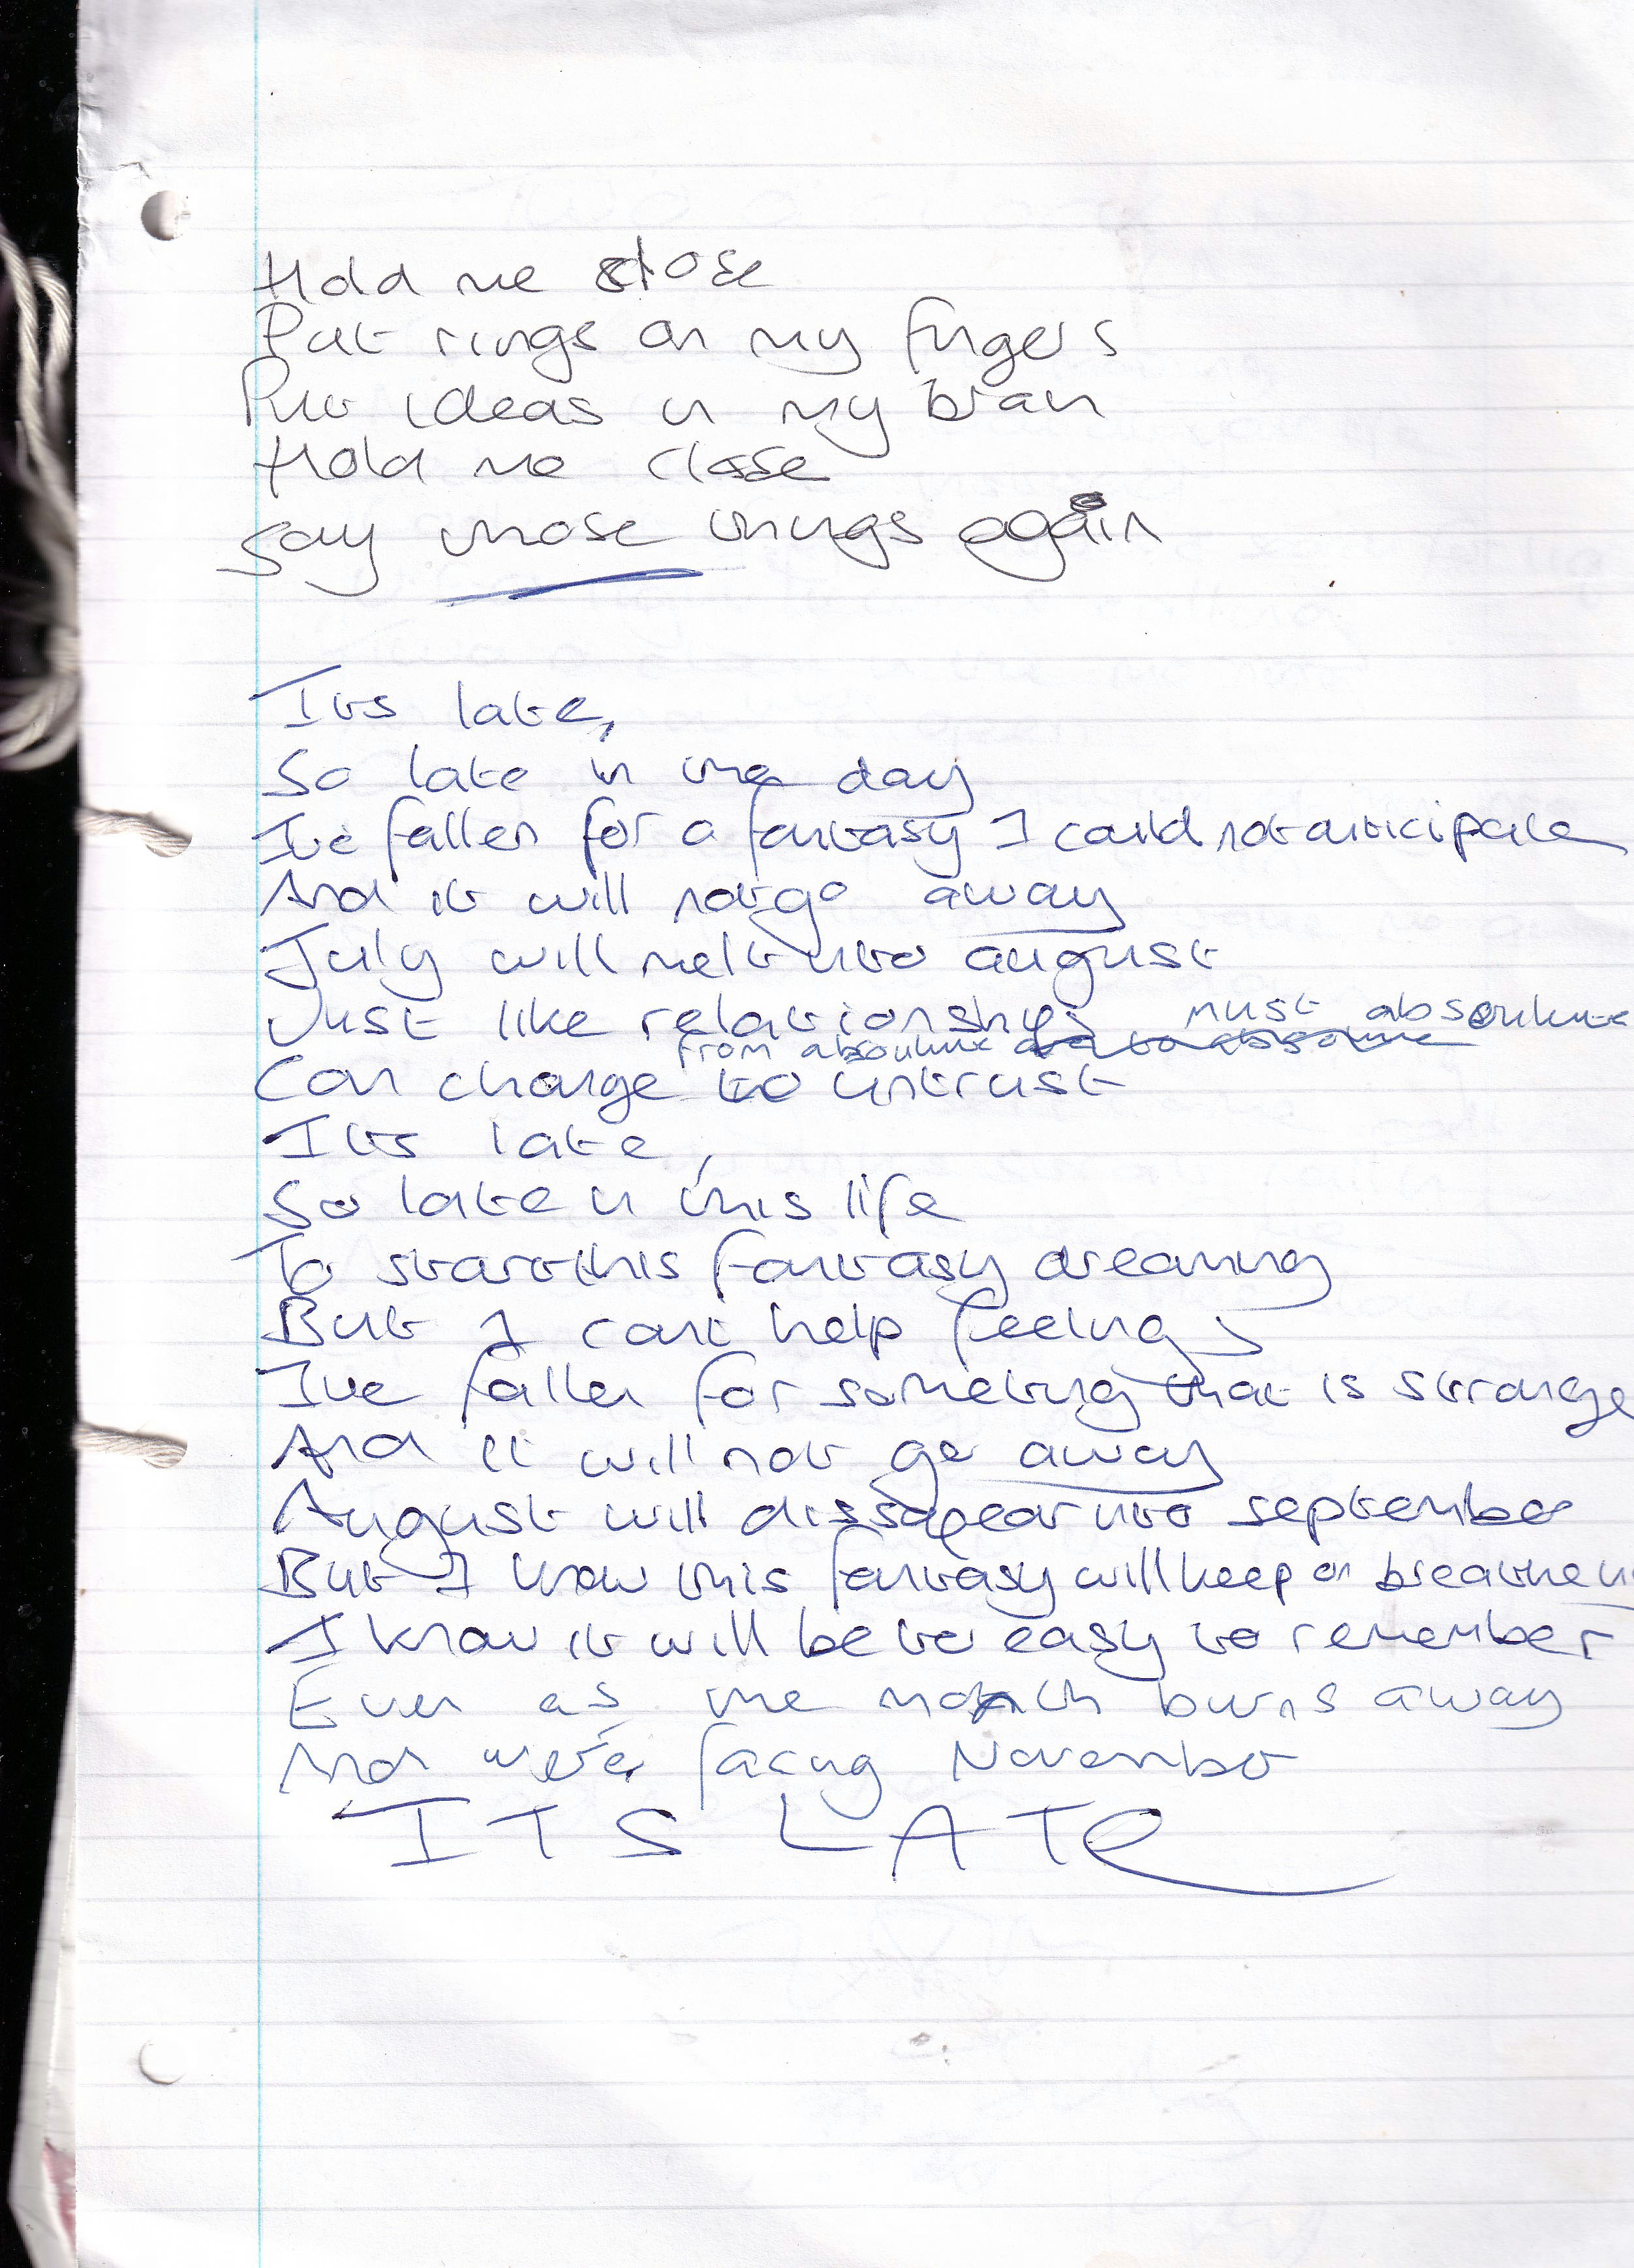 Hold me close
Put rings on my fingers
Put ideas in my brain
Hold me close
Say those things again
Its late,
So late in the day
I've fallen for a fantasy I could not anticipate
And it will not go away
July will melt into august
Just like relationships must
from absolute
Can change to untrust
Its late,
So late in this life
To start this fantasy dreaming
But I cant help feeling
Ive fallen for something that is strange
And it will not go away
August will dissapear into september
But I know this fantasy will keep on
I know it will be to easy to remember
Even as the month burns away
And we're facing November
ITS LATE